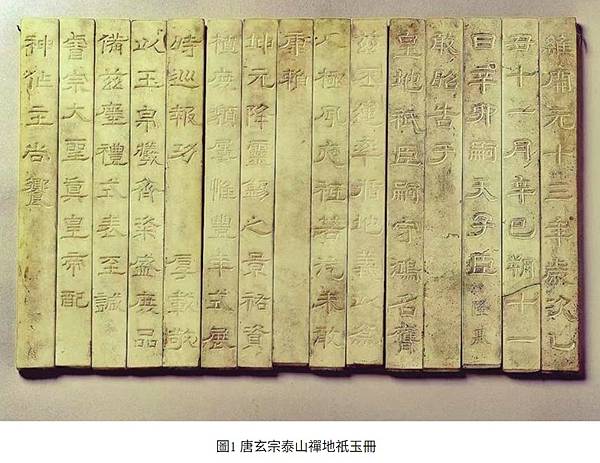 維開元十三年歲次乙
丑十一月辛巳朔十一
日辛卯嗣天子臣隆基
敢昭告于
皇地祇臣嗣守鴻名膺
茲丕緒率循地義以為
人極夙夜祗若汔未敢
康賴
坤元降靈錫之景祐資
植庶類屢惟豐年式展
時巡報功 厚載敬
以玉帛犧齊粢盛庶品
備茲瘞禮式表至誠
睿宗大聖真皇帝配
神作主尚饗
圖1 唐玄宗泰山禪地祇玉冊